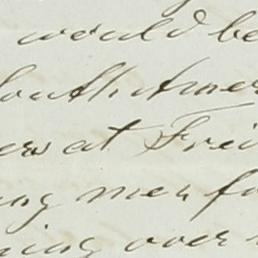 would be
South Amer
ers at Frei
ing men fo
ning over